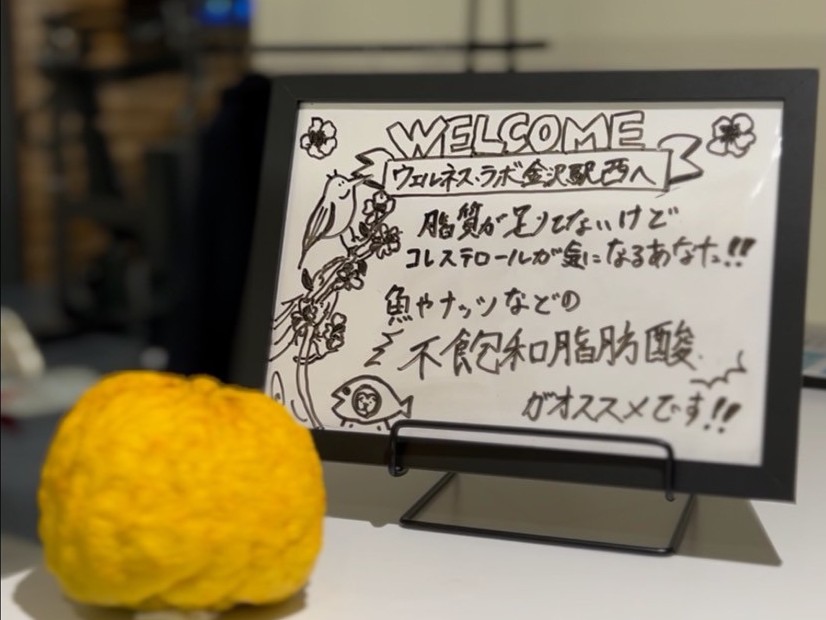 WELCOME
ウェルネス・ラボ金沢駅西へ
脂質が足りてないけど
コレステロールが気になるあなた!!
魚やナッツなどの
不飽和脂肪酸
がオススメです!!